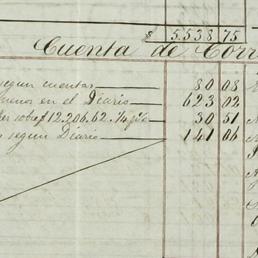 $ 5538 75
Cuenta de Corr
segun cuentas 80 08
menos en el Diario 623 02
sobre $12.206.62. 1/4 pc/o 30 51
segun Diario 141 06